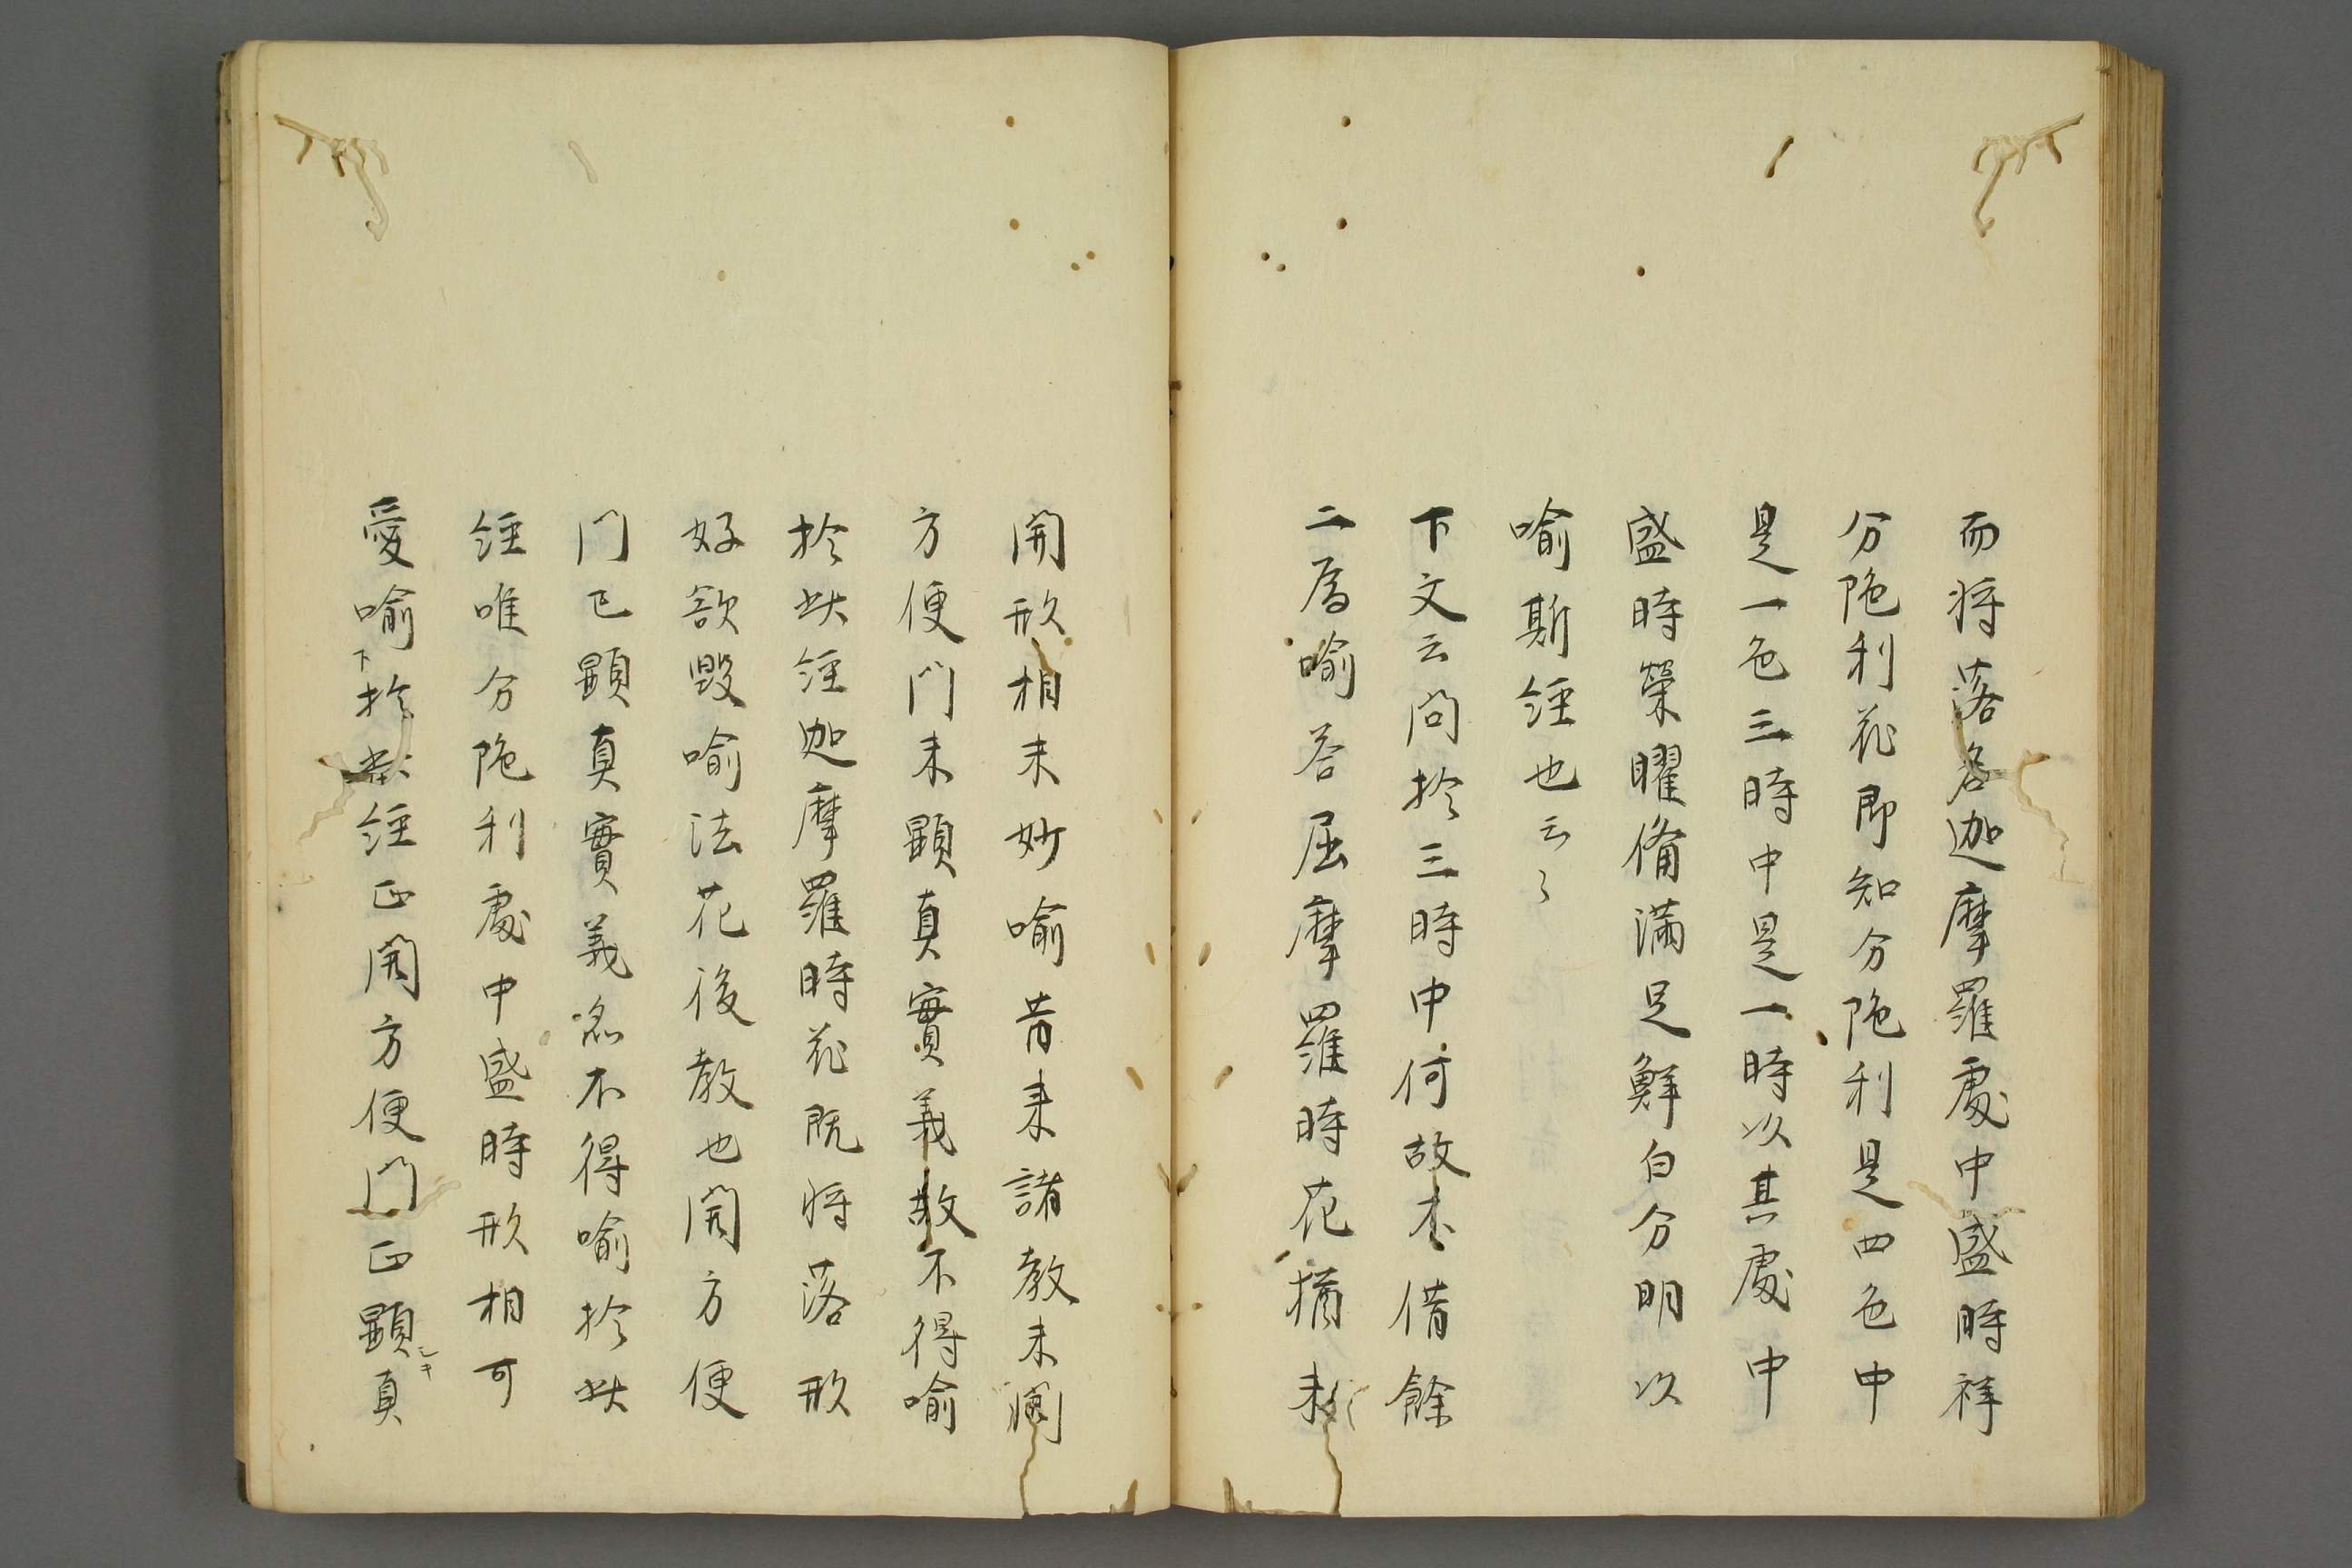 而将落名迦摩羅處中盛時祥
分陁利花即知分陁利是四色中
是一色三時中是一時以其處中
盛時榮曜俻滿足鮮白分明以
喻斯經也云〻
下文云問於三時中何故不借餘
二為喻荅屈摩羅時花猶未
開形相未妙喻昔来諸教未開
方便門未顯真實義故不得喻
於此經迦摩羅時花既将落形
好欲毀喻法花後教也開方便
門已顯真實義不得喻於此
經唯分陁利處中盛時形相可
愛喻下於此經正開方便門正顯真